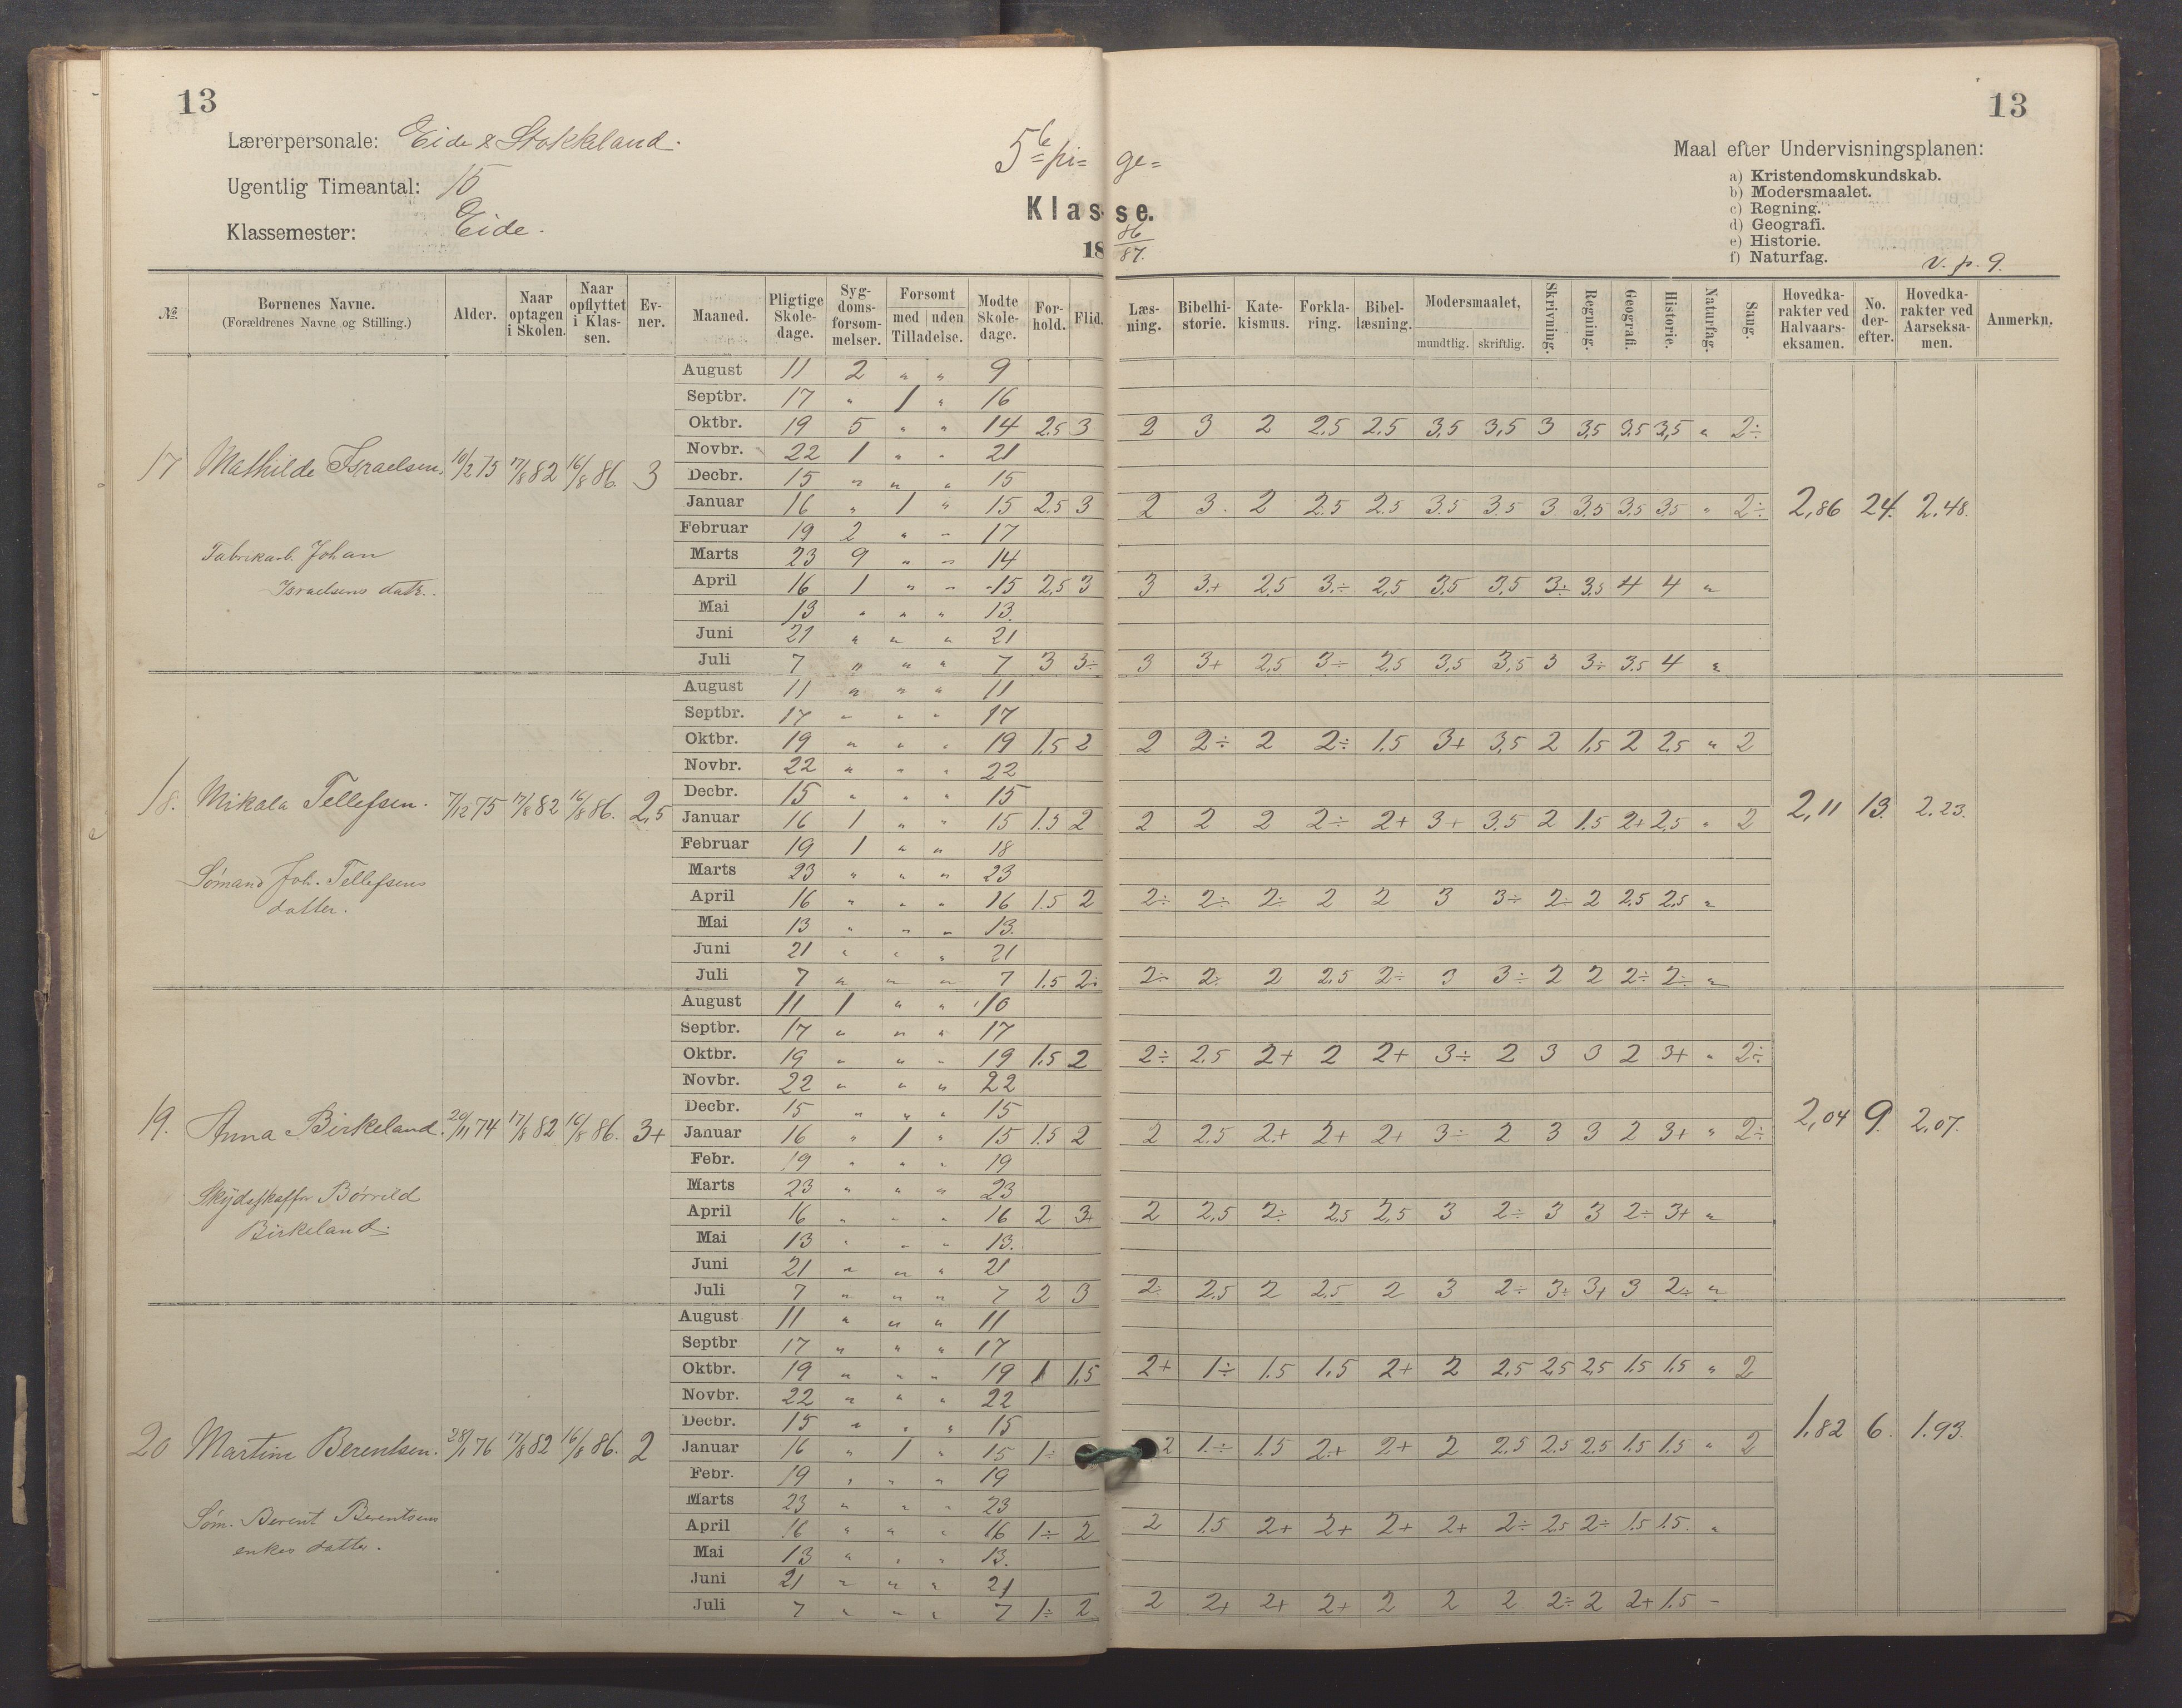 13
13
Lærerpersonale: Eide & Stokkeland.
Ugentlig Timeantal: 15
Klassemester: Eide.
5te pi= ge=
Klasse.
1886/87.
Maal efter Undervisningsplanen:
a) Kristendomskundskab.
b) Modersmaalet.
c) Regning.
d) Geografi.
e) Historie.
f) Naturfag. v. p. 9.
№ Børnenes Navne. (Forældrenes Navne og Stilling.) Alder. Naar optagen i Skolen. Naar opflyttet i Klassen. Evner. Maaned. Pligtige Skoledage. Sygdomsforsømmelser. Forsømt med uden Tilladelse. Mødte Skoledage. Forhold. Flid. Læsning. Bibelhistorie. Katekismus. Forklaring. Bibellæsning. Modersmaalet, mundtlig. skriftlig. Skrivning. Regning. Geografi. Historie. Naturfag. Sang. Hovedkarakter ved Halvaarseksamen. No. derefter. Hovedkarakter ved Aarseksamen. Anmerkn.
17 Mathilde Israelsen. 10/2 75 17/8 82 16/8 86. 3
Fabrikarb. Johan
Israelsens datr.
August 11 2 " " 9
Septbr. 17 " 1 " 16
Oktbr. 19 5 " " 14 2.5 3 2 3 2 2.5 2.5 3.5 3,5 3 3,5 3.5 3,5 " 2÷
Novbr. 22 1 " " 21
Decbr. 15 " " " 15
Januar 16 " 1 " 15 2.5 3 2 3. 2 2.5 2.5 3.5 3.5 3 3,5 3,5 3,5 " 2÷ 2,86 24. 2.48.
Februar 19 2 " " 17
Marts 23 9 " " 14
April 16 1 " " 15 2,5 3 3 3+ 2.5 3÷ 2,5 3,5 3,5 3÷ 3,5 4 4 "
Mai 13 " " " 13.
Juni 21 " " " 21
Juli 7 " " " 7 3 3÷ 3 3+ 2,5 3÷ 2,5 3,5 3,5 3 3÷ 3.5 4 "
18. Mikala Tellefsen. 7/12 75 17/8 82 16/8 86. 2,5
Sømand Joh. Tellefsens
datter.
August 11 " " " 11
Septbr. 17 " " " 17
Oktbr. 19 " " " 19 1.5 2 2 2÷ 2 2÷ 1.5 3+ 3,5 2 1,5 2 2,5 " 2
Novbr. 22 " " " 22
Decbr. 15 " " " 15
Januar 16 1 " " 15 1.5 2 2 2 2 2÷ 2+ 3+ 3,5 2 1.5 2+ 2,5 " 2 2,11 13. 2.23.
Februar 19 1 " " 18
Marts 23 " " " 23
April 16 " " " 16 1.5 2 2÷ 2÷ 2÷ 2 2 3 3÷ 2÷ 2 2.5 2,5 "
Mai 13 " " " 13.
Juni 21 " " " 21
Juli 7 " " " 7 1.5 2÷ 2÷ 2÷ 2 2,5 2÷ 3 3÷ 2 2 2÷ 2÷ "
19. Anna Birkeland. 20/11 74 17/8 82 16/8 86. 3+
Skydsskaffer Børrild
Birkeland.
August 11 1 " " 10
Septbr. 17 " " " 17
Oktbr. 19 " " " 19 1.5 2 2÷ 2.5 2+ 2 2+ 3÷ 2 3 3 2 3+ " 2÷
Novbr. 22 " " " 22
Decbr. 15 " " " 15
Januar 16 " 1 " 15 1.5 2 2 2.5 2+ 2+ 2+ 3÷ 2 3 3 2 3+ " 2÷ 2,04 9. 2,07.
Febr. 19 " " " 19
Marts 23 " " " 23
April 16 " " " 16 2 3+ 2 2,5 2÷ 2,5 2,5 3 2÷ 3 3 2÷ 3+ "
Mai 13 " " " 13.
Juni 21 " " " 21
Juli 7 " " " 7 2 3 2÷ 2.5 2 2.5 2 3 2÷ 3÷ 3+ 3 2÷ "
20 Martine Berentsen. 28/1 76 17/8 82 16/8 86. 2
Søm. Berent Berentsens
enkes datter.
August 11 " " " 11
Septbr 17 " " " 17
Oktbr. 19 " " " 19 1 1,5 2+ 1÷ 1.5 1.5 2+ 2 2,5 2,5 2,5 1,5 1,5 " 2
Novbr. 22 " " " 22
Decbr. 15 " " " 15
Januar 16 " 1 " 15 1÷ 2 1÷ 1.5 2+ 2+ 2 2,5 2.5 2.5 1.5 1.5 " 2 1.82 6. 1.93.
Febr. 19 " " " 19
Marts 23 " " " 23
April 16 " " " 16 1÷ 2 2 1.5 2+ 2+ 2+ 2+ 2÷ 2.5 2÷ 1.5 1.5. "
Mai 13 " " " 13.
Juni 21 " " " 21
Juli 7 " " " 7 1÷ 2 2 2+ 2+ 2+ 2 2 2 2÷ 2 2+ 1.5 –